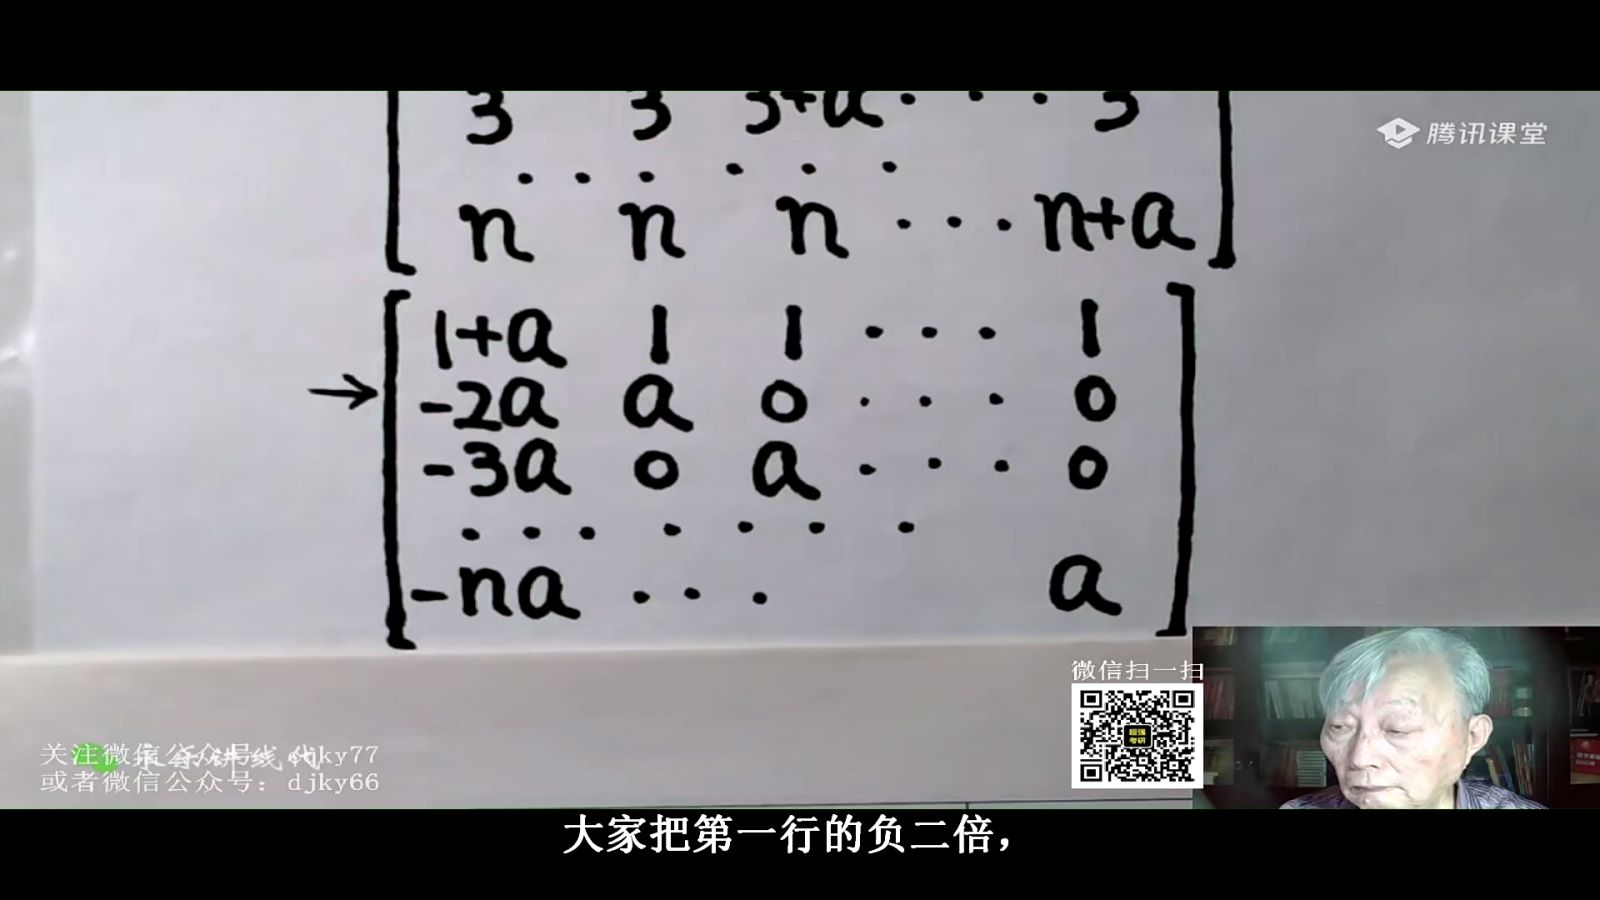 3 3 3+a · · · 3
· · · · · ·
n n n · · · n+a
1+a 1 1 · · · 1
→ -2a a 0 · · · 0
-3a 0 a · · · 0
· · · · · · ·
-na · · · a
腾讯课堂
微信扫一扫
超强
考研
关注微信公众号
ky77
讲线代
或者微信公众号：djky66
大家把第一行的负二倍，